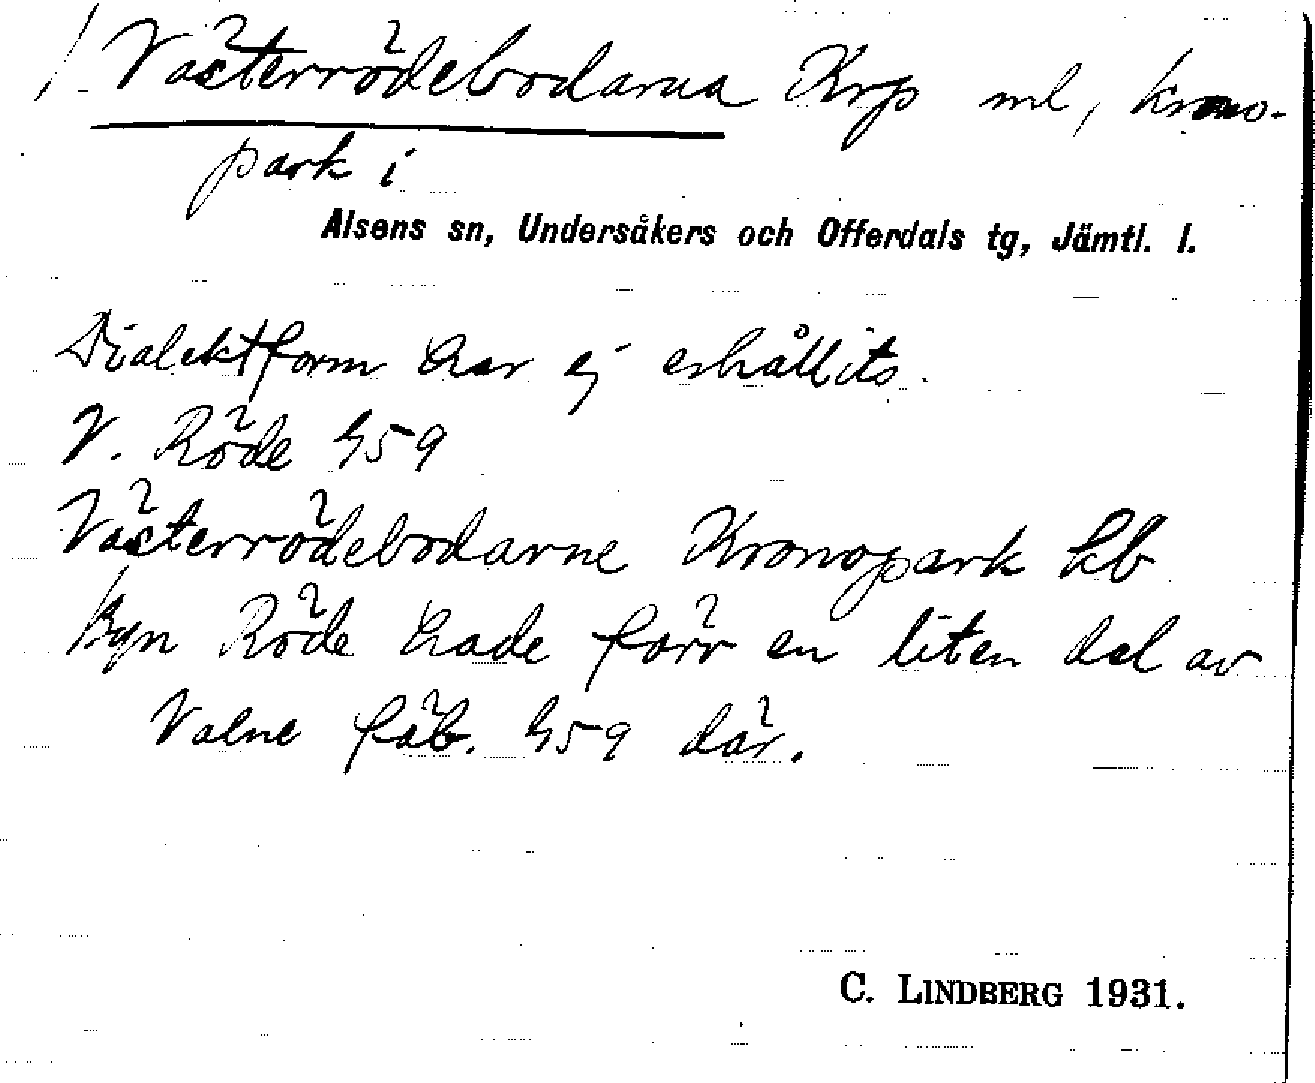 / Västerrödebodarna Krp ml, krono-
park i
Alsens sn, Undersåkers och Offerdals tg, Jämtl. l.
Dialektform har ej erhållits.
V. Röde 459
Västerrödebodarne Kronopark kb
Byn Röde hade förr en liten del av
Valne fäb. 459 där.
C. LINDBERG 1931.